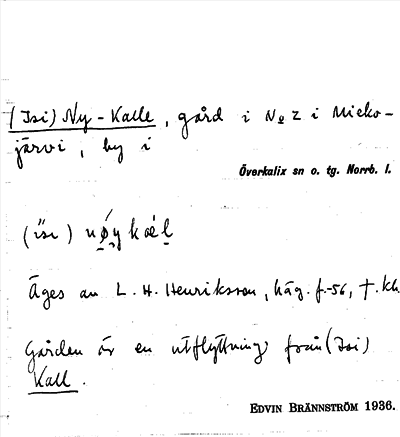 (Isi) Ny-Kalle, gård i No 2 i Mieko-
järvi, by i
Överkalix sn o. tg. Norrb. l.
(isi)
Äges av L. H. Henriksson, häg. f.-56, †. kh.
Gården är en utflyttning från (Isi)
Kall.
EDVIN BRÄNNSTRÖM 1936.